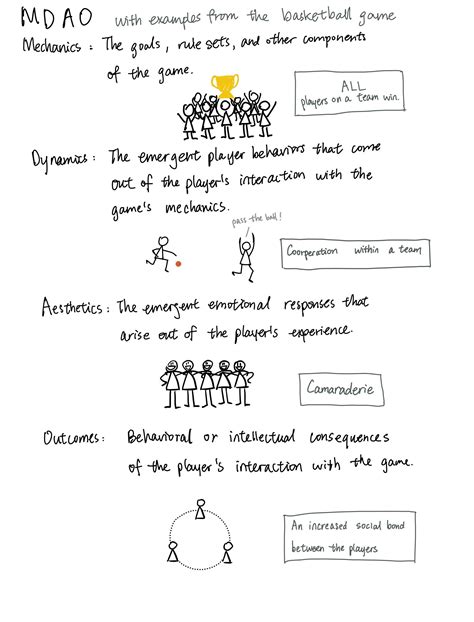 MDAO with examples from the basketball game
Mechanics: The goals, rule sets, and other components
of the game.
ALL
players on a team win.
Dynamics: The emergent player behaviors that come
out of the player's interaction with the
game's mechanics.
pass the ball!
Coorperation within a team
Aesthetics: The emergent emotional responses that
arise out of the player's experience.
Camaraderie
Outcomes: Behavioral or intellectual consequences
of the player's interaction with the game.
An increased social bond
between the players